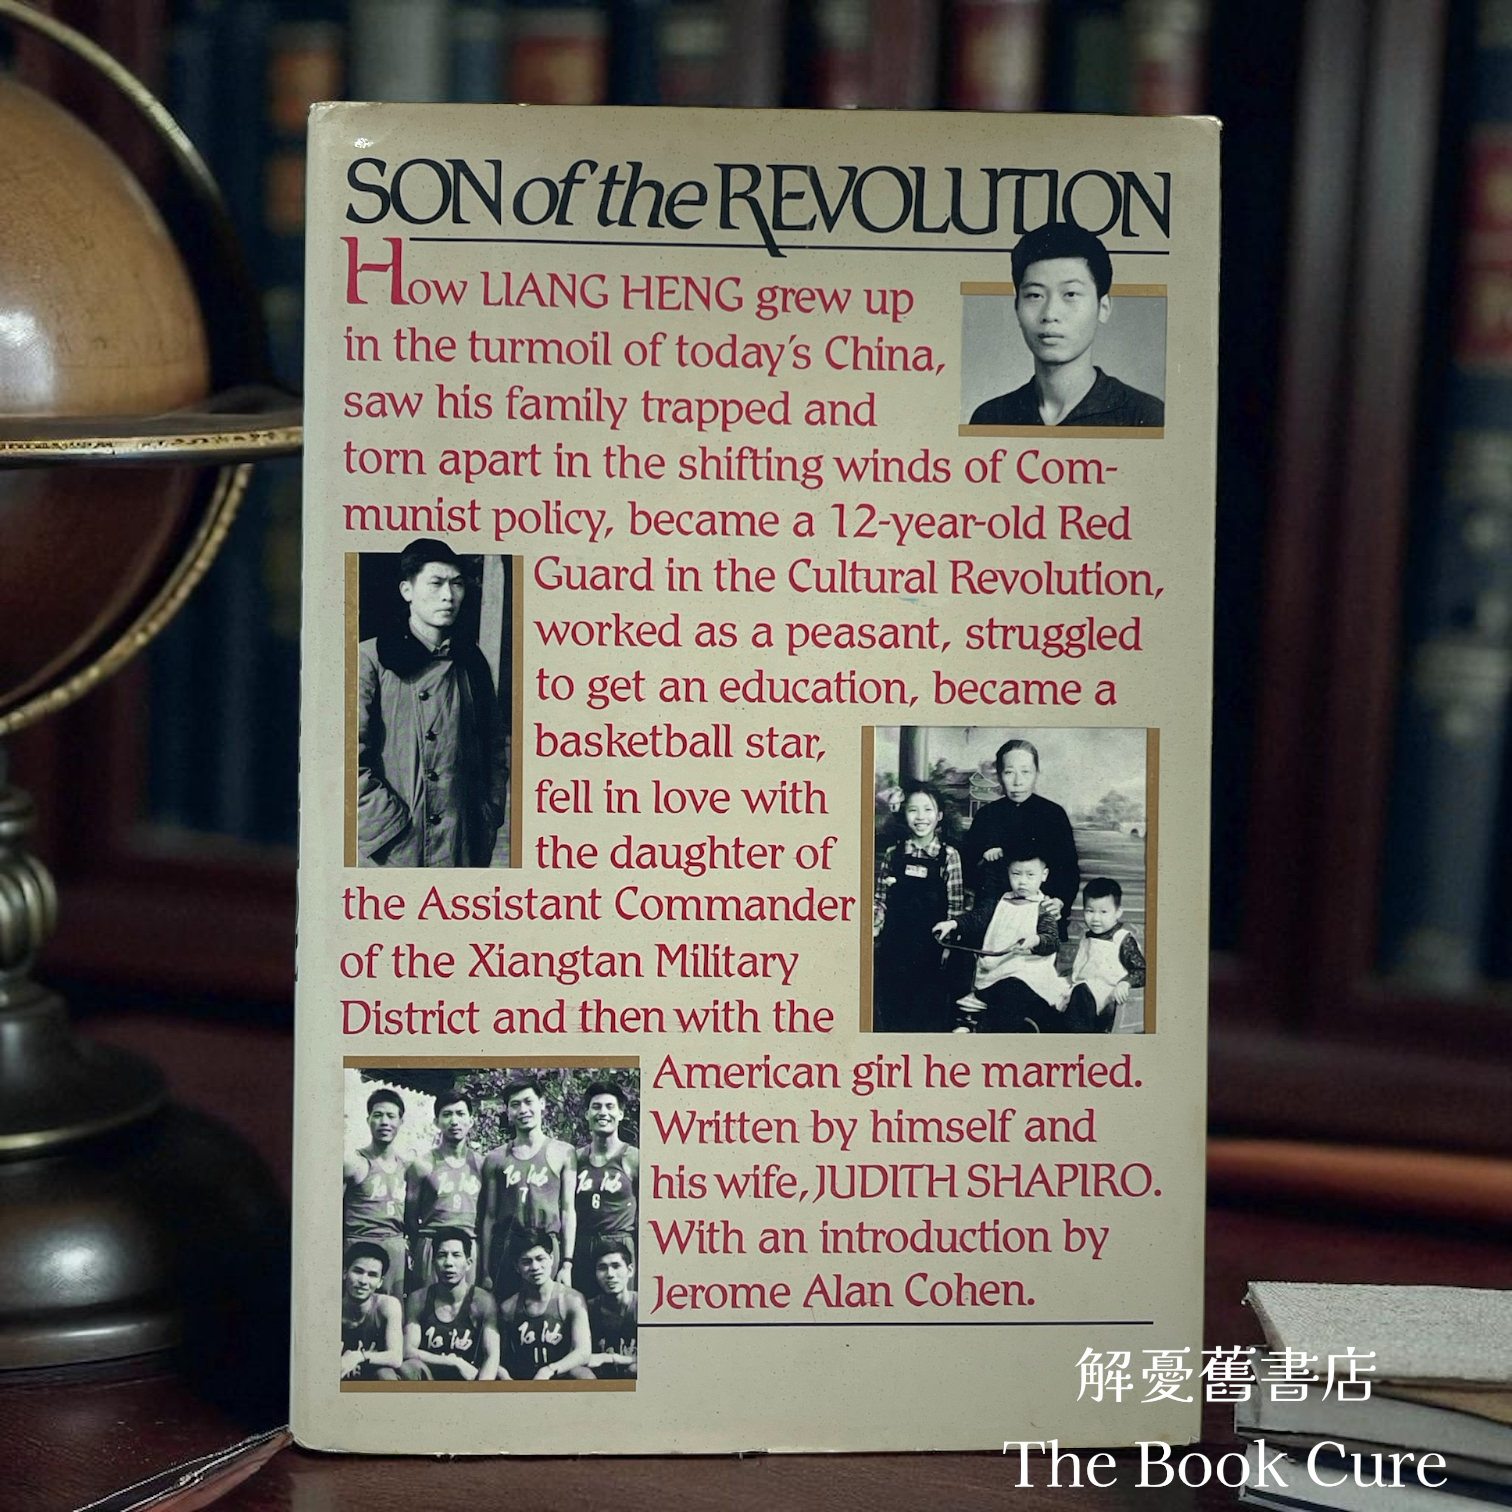 SON of the REVOLUTION
How LIANG HENG grew up
in the turmoil of today's China,
saw his family trapped and
torn apart in the shifting winds of Com-
munist policy, became a 12-year-old Red
Guard in the Cultural Revolution,
worked as a peasant, struggled
to get an education, became a
basketball star,
fell in love with
the daughter of
the Assistant Commander
of the Xiangtan Military
District and then with the
American girl he married.
Written by himself and
his wife, JUDITH SHAPIRO.
With an introduction by
Jerome Alan Cohen.
7
6
11
解憂舊書店
The Book Cure